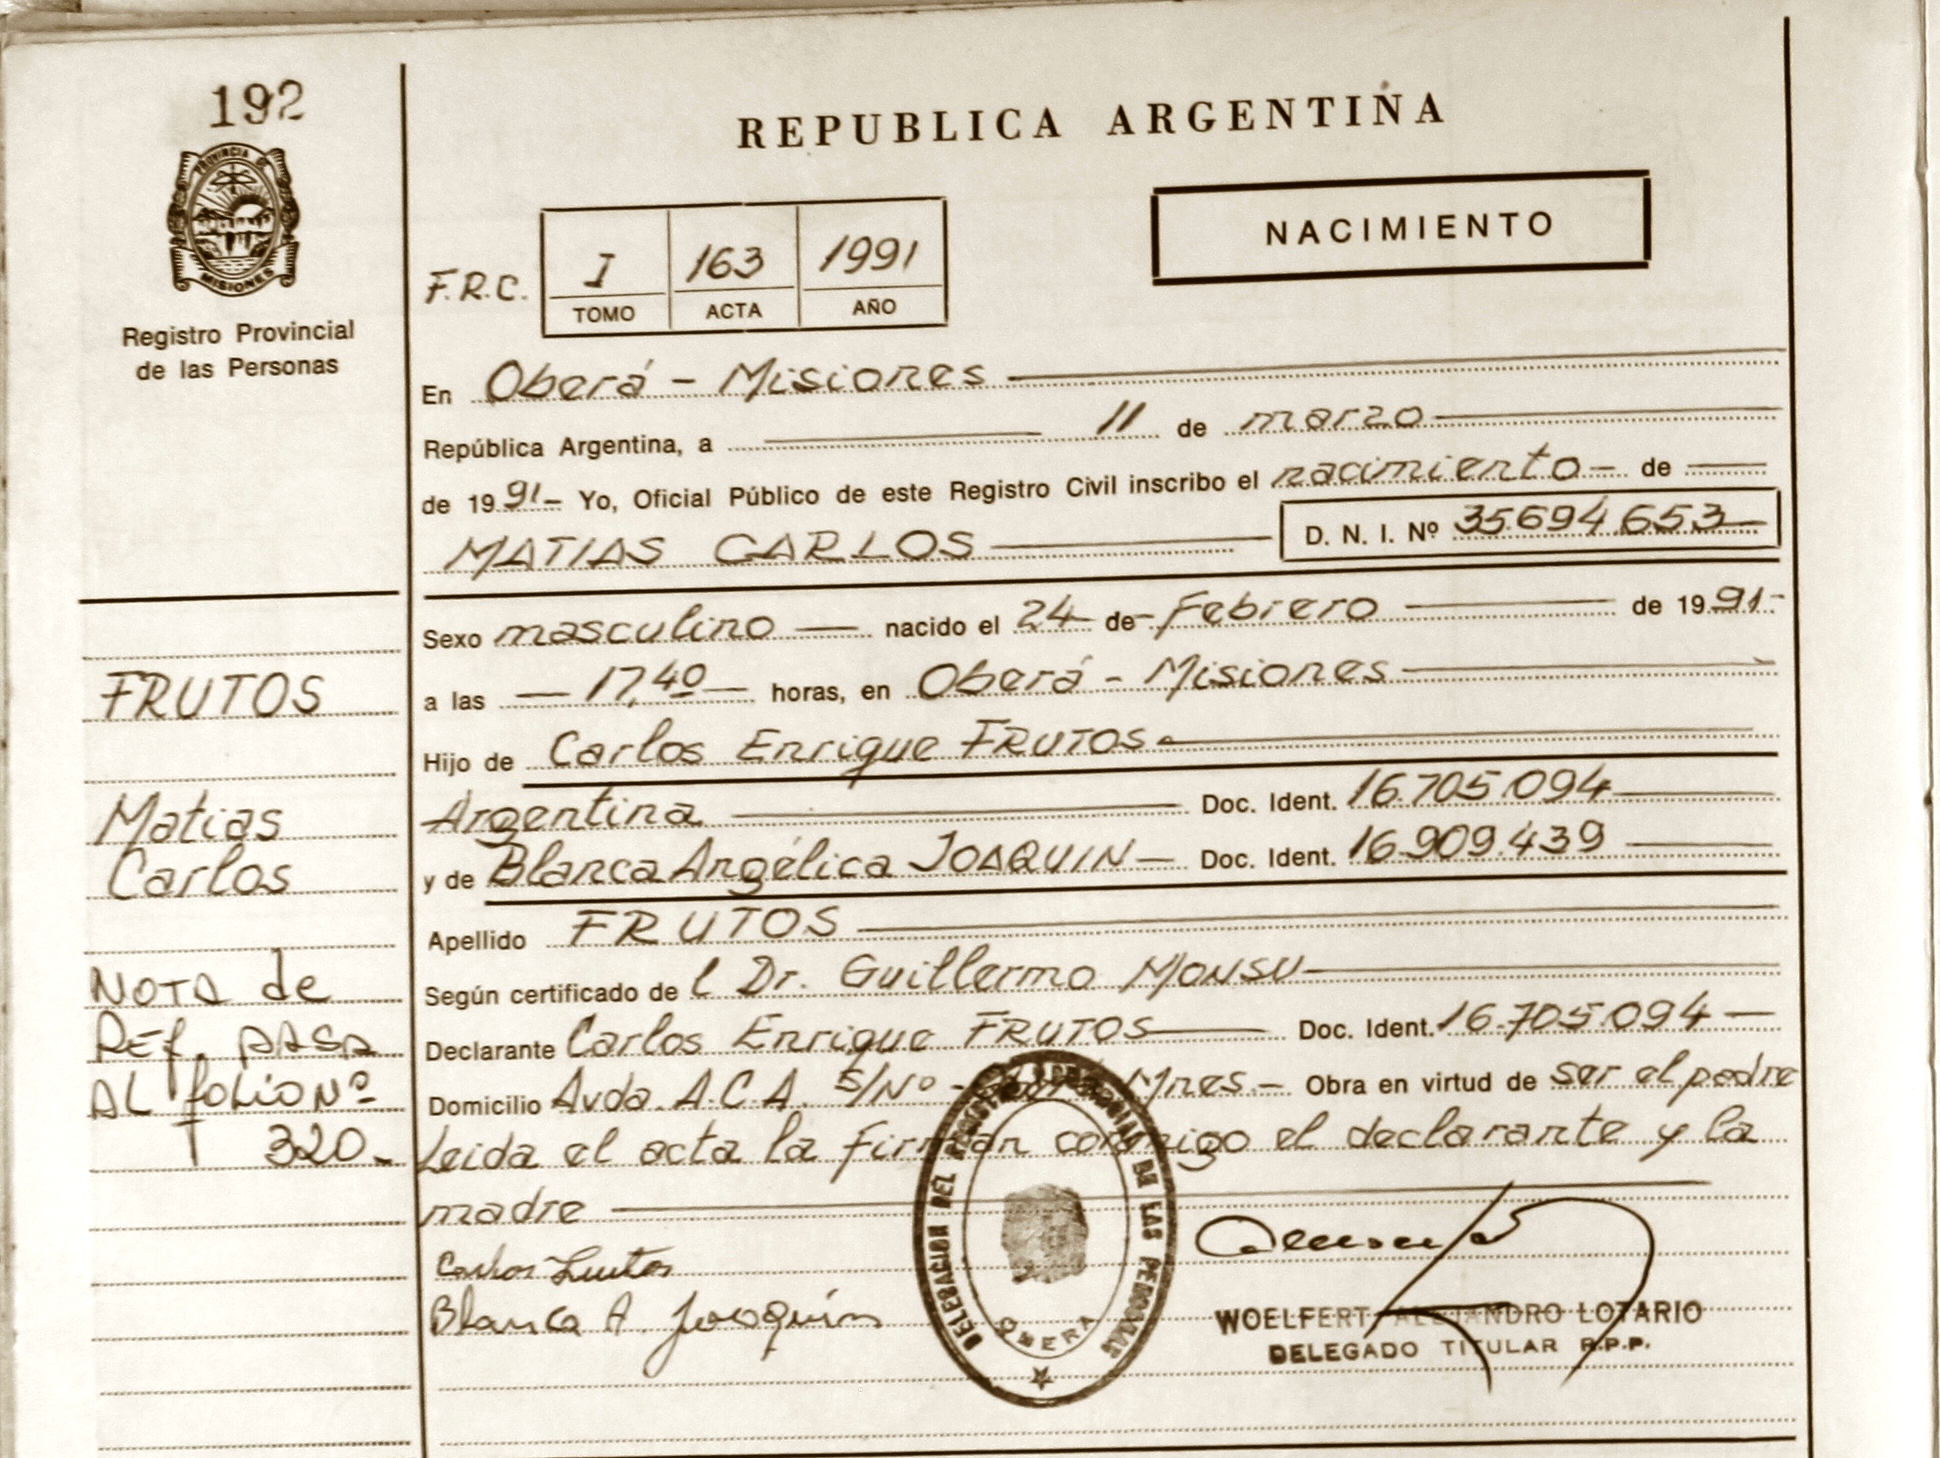 192
PROVINCIA DE
MISIONES
Registro Provincial
de las Personas
REPUBLICA ARGENTINA
NACIMIENTO
F.R.C. I 163 1991
TOMO ACTA AÑO
En Oberá - Misiones
República Argentina, a 11 de marzo
de 1991- Yo, Oficial Público de este Registro Civil inscribo el nacimiento - de
MATIAS CARLOS D. N. I. Nº 35.694.653
Sexo masculino nacido el 24 de Febrero de 1991-
a las 17,40 horas, en Oberá - Misiones
Hijo de Carlos Enrique FRUTOS
Argentina Doc. Ident. 16.705.094
y de Blanca Angélica JOAQUIN Doc. Ident. 16.909.439
Apellido FRUTOS
Según certificado de l Dr. Guillermo MONSU
Declarante Carlos Enrique FRUTOS Doc. Ident. 16.705.094
Domicilio Avda. A.C.A. S/Nº - Mnes. - Obra en virtud de ser el padre
Leida el acta la firman conmigo el declarante y la
madre
Carlos Frutos
Blanca A. Joaquín
DELEGACION DEL REGISTRO PROVINCIAL DE LAS PERSONAS
OBERA
WOELFERT ALEJANDRO LOTARIO
DELEGADO TITULAR R.P.P.
FRUTOS
Matias
Carlos
NOTA de
REf. PASA
AL foLio Nº
320-